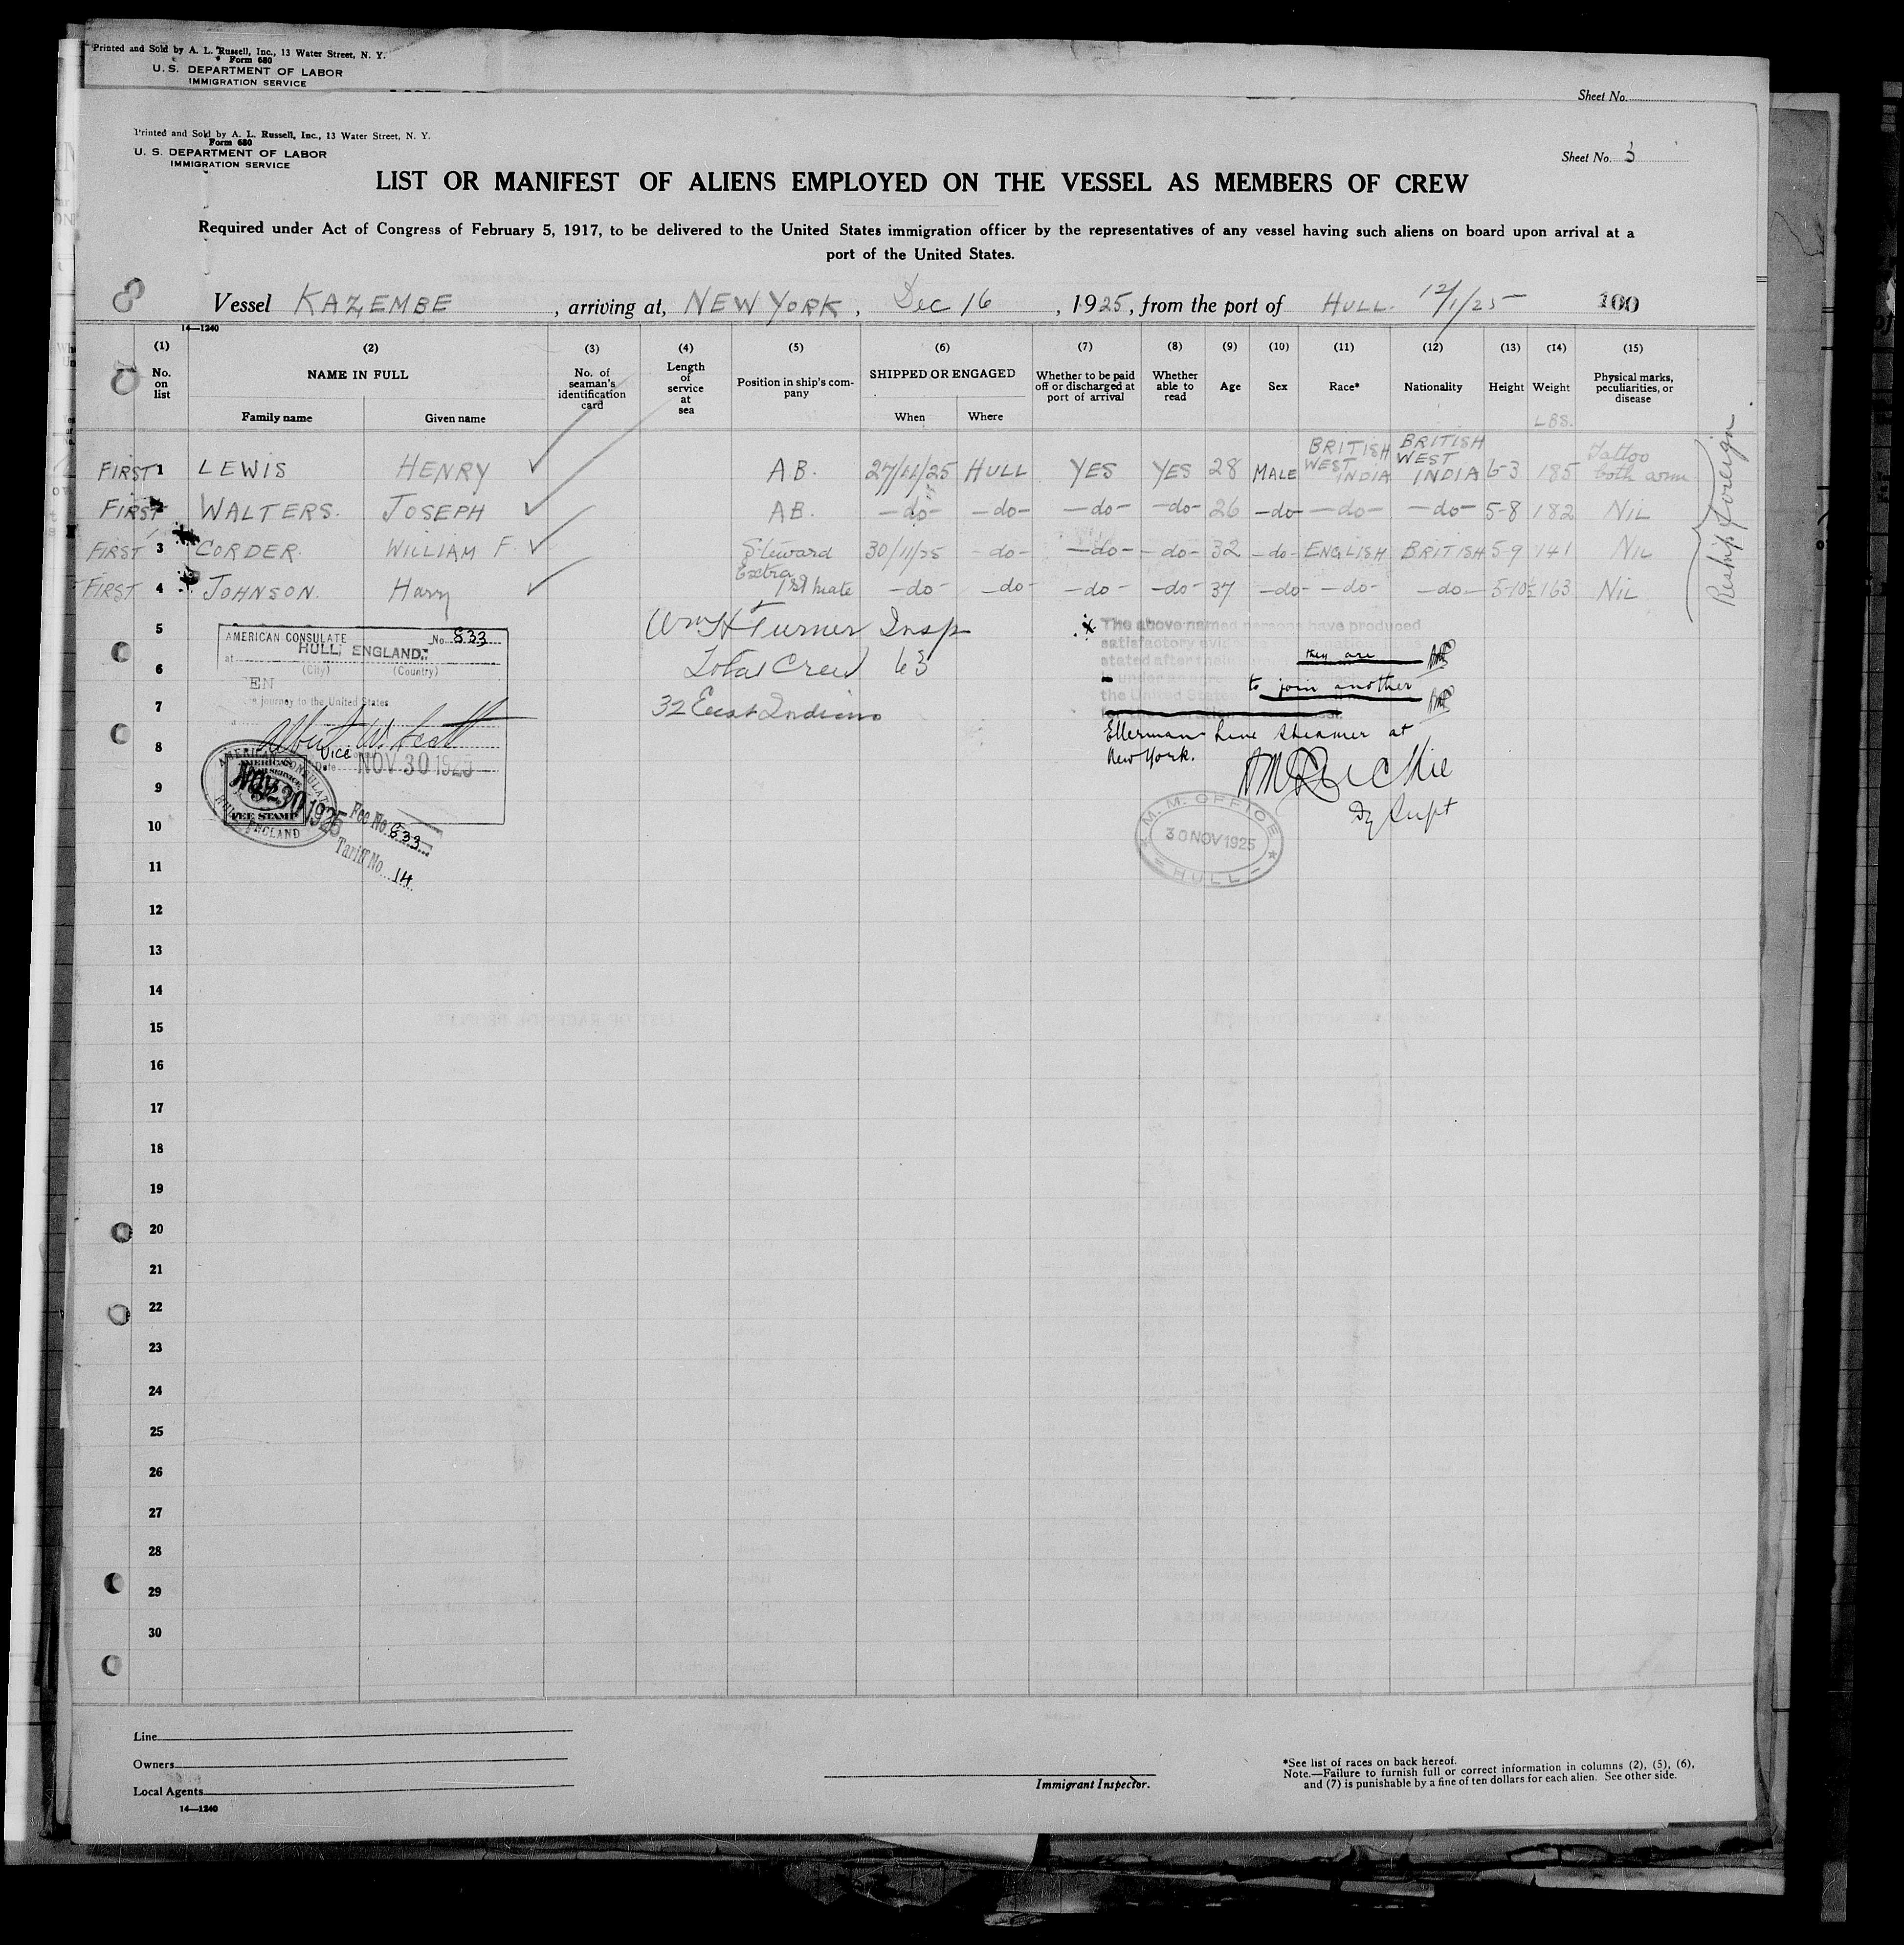 Printed and Sold by A. L. Russell, Inc., 13 Water Street, N. Y.
Form 680
U. S. DEPARTMENT OF LABOR
IMMIGRATION SERVICE
Sheet No.
Printed and Sold by A. L. Russell, Inc., 13 Water Street, N. Y.
Form 680
U. S. DEPARTMENT OF LABOR
IMMIGRATION SERVICE
Sheet No. 3
LIST OR MANIFEST OF ALIENS EMPLOYED ON THE VESSEL AS MEMBERS OF CREW
Required under Act of Congress of February 5, 1917, to be delivered to the United States immigration officer by the representatives of any vessel having such aliens on board upon arrival at a
port of the United States.
8 Vessel KAZEMBE, arriving at, NEW YORK, Dec 16, 1925, from the port of HULL. 12/1/25 100
14—1240
(1) (2) (3) (4) (5) (6) (7) (8) (9) (10) (11) (12) (13) (14) (15)
No. on list
NAME IN FULL
Family name Given name
No. of seaman's identification card
Length of service at sea
Position in ship's company
SHIPPED OR ENGAGED
When Where
Whether to be paid off or discharged at port of arrival
Whether able to read
Age
Sex
Race*
Nationality
Height
Weight
LBS.
Physical marks, peculiarities, or disease
FIRST 1 LEWIS HENRY ✓ A B. 27/11/25 HULL YES YES 28 MALE BRITISH WEST INDIA BRITISH WEST INDIA 6-3 185 Tattoo both arm
FIRST 2 WALTERS. JOSEPH ✓ A B. —do— —do— —do— —do— 26 —do— —do— —do— 5-8 182 NIL
FIRST 3 CORDER. WILLIAM F. ✓ Steward 30/11/25 —do— —do— —do— 32 —do— ENGLISH BRITISH 5-9 141 NIL
FIRST 4 JOHNSON. Harry ✓ Extra 1st Mate —do— —do— —do— —do— 37 —do— —do— —do— 5-10½ 163 NIL
Reship foreign
5
6
7
8
9
10
11
12
13
14
15
16
17
18
19
20
21
22
23
24
25
26
27
28
29
30
AMERICAN CONSULATE No. 833
at HULL, ENGLAND.
(City) (Country)
EN
journey to the United States
Albert W. Scott
Vice
Date NOV 30 1925
AMERICAN CONSULATE
HULL, ENGLAND
FEE STAMP
NOV 30 1925
Fee No. 833
Tariff No. 14
Wm H Turner Insp
Total Crew 63
32 East Indians
The above named persons have produced
satisfactory
stated after their
they are
under an
to join another
the United States
Ellerman Line Steamer at
New York.
Dy Supt
M. M. OFFICE
30 NOV 1925
HULL
Line
Owners
Local Agents
14—1240
Immigrant Inspector.
*See list of races on back hereof.
Note.—Failure to furnish full or correct information in columns (2), (5), (6),
and (7) is punishable by a fine of ten dollars for each alien. See other side.